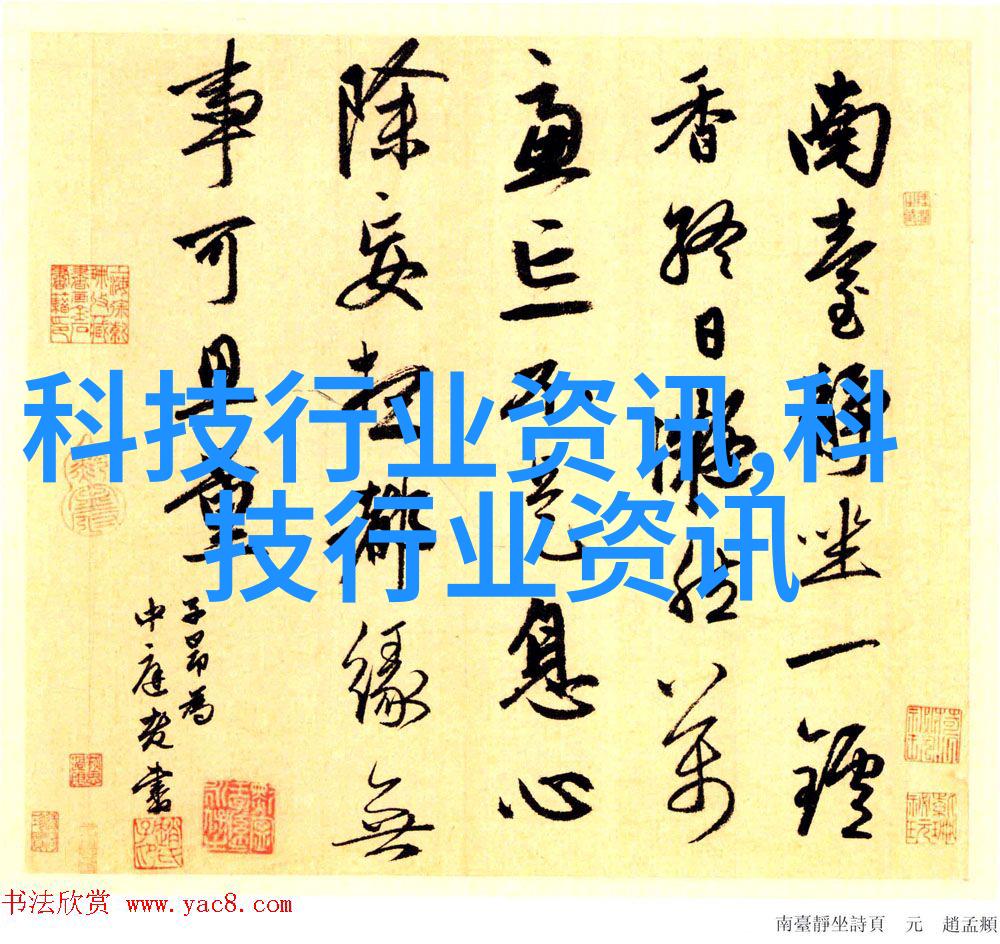 南臺靜坐一鑪
香終日凝然萬
慮亡不是息心
除妄想都緣無
事可思量
子昂為
中庭老書
科技行业资讯,科
技行业资讯
书法欣赏 www.yac8.com
南臺靜坐詩頁 元 趙孟頫